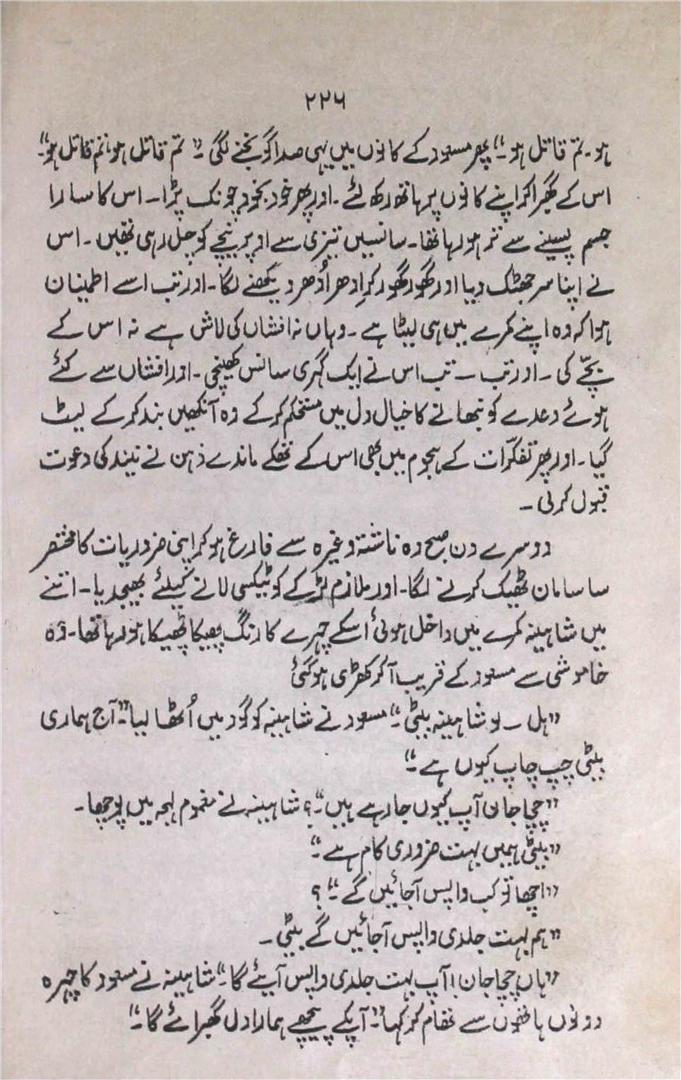 ۲۲۶
ہو۔ تم قاتل ہو۔“ پھر مسعود کے کانوں میں یہی صدا گونجنے لگی۔ ”تم قاتل ہو، تم قاتل ہو۔“
اس کے گھبرا کر اپنے کانوں پر ہاتھ رکھ لئے ۔ اور پھر خود بخود چونک پڑا ۔ اس کا سارا
جسم پسینے سے تر ہو رہا تھا۔ سانسیں تیزی سے اوپر نیچے کو چل رہی تھیں ۔ اس
نے اپنا سر جھٹک دیا اور گھور گھور کر اِدھر اُدھر دیکھنے لگا۔ اور تب اسے اطمینان
ہوا کہ وہ اپنے کمرے میں ہی لیٹا ہے ۔ وہاں نہ افشاں کی لاش ہے نہ اس کے
بچّے کی ۔ اور تب ۔ تب اس نے ایک گہری سانس کھینچی ۔ اور افشاں سے کئے
ہوئے وعدے کو نبھانے کا خیال دل میں مستحکم کر کے وہ آنکھیں بند کر کے لیٹ
گیا ۔ اور پھر تفکرّات کے ہجوم میں بھی اس کے تھکے ماندے ذہن نے نیند کی دعوت
قبول کر لی ۔
دوسرے دن صبح وہ ناشتہ وغیرہ سے فارغ ہو کر اپنی ضروریات کا مختصر
سا سامان ٹھیک کرنے لگا۔ اور ملازم لڑکے کو ٹیکسی لانے کیلئے بھیجدیا ۔ اتنے
میں شاہینہ کمرے میں داخل ہوئی اسکے چہرے کا رنگ پھیکا پھیکا ہو رہا تھا ۔ وہ
خاموشی سے مسعود کے قریب آ کر کھڑی ہو گئی
”ہل ۔ لو شاہینہ بیٹی۔“ مسعود نے شاہینہ کو گود میں اُٹھا لیا ”آج ہماری
بیٹی چپ چاپ کیوں ہے۔“
”چچا جان آپ کیوں جا رہے ہیں۔“؟ شاہینہ نے مغموم لہجہ میں پوچھا ۔
”بیٹی ہمیں بہت ضروری کام ہے۔“
”اچھا تو کب واپس آجائیں گے۔“؟
”ہم بہت جلدی واپس آجائیں گے بیٹی ۔
”ہاں چچا جان! آپ بہت جلدی واپس آیئے گا۔“ شاہینہ نے مسعود کا چہرہ
دونوں ہاتھوں سے تھام کر کہا ”آپکے پیچھے ہمارا دل گھبرائے گا۔“